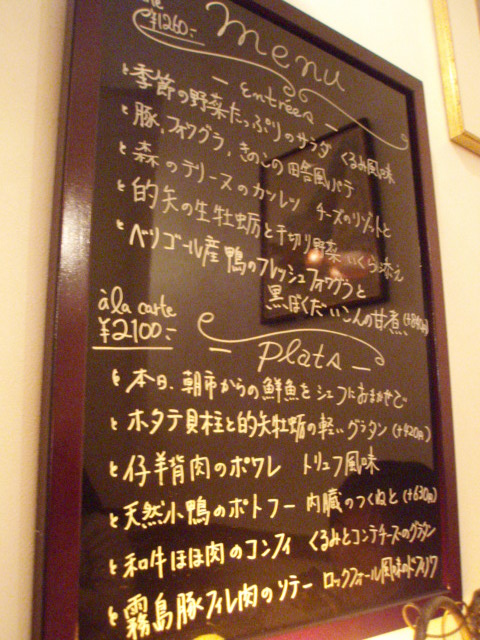 ¥1260-
menu
- Entrées -
季節の野菜たっぷりのサラダ くるみ風味
豚、フォワグラ、きのこの田舎風パテ
森のテリーヌのカツレツ チーズのリゾットと
的矢の生牡蛎と千切り野菜 いくら添え
ペリゴール産鴨のフレッシュフォワグラと
黒ぼくだいこんの甘煮 (+840円)
à la carte
¥2100-
- Plats -
本日、朝市からの鮮魚をシェフにおまかせで
ホタテ貝柱と的矢牡蛎の軽いグラタン (+420円)
仔羊背肉のポワレ トリュフ風味
天然小鴨のポトフー 内臓のつくねと (+630円)
和牛ほほ肉のコンフィ くるみとコンテチーズのグラタン
霧島豚フィレ肉のソテー ロックフォール風味の